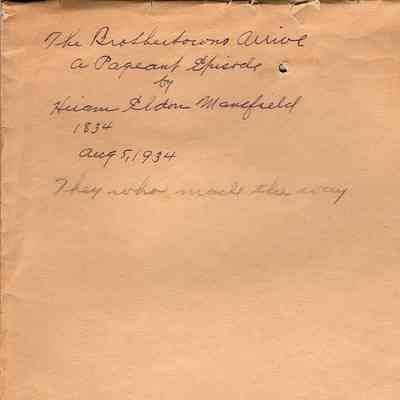 The Brothertowns Arrive
A Pageant Episode
by
Hiram Eldon Mansfield
1834
Aug 5, 1934
They who made the way